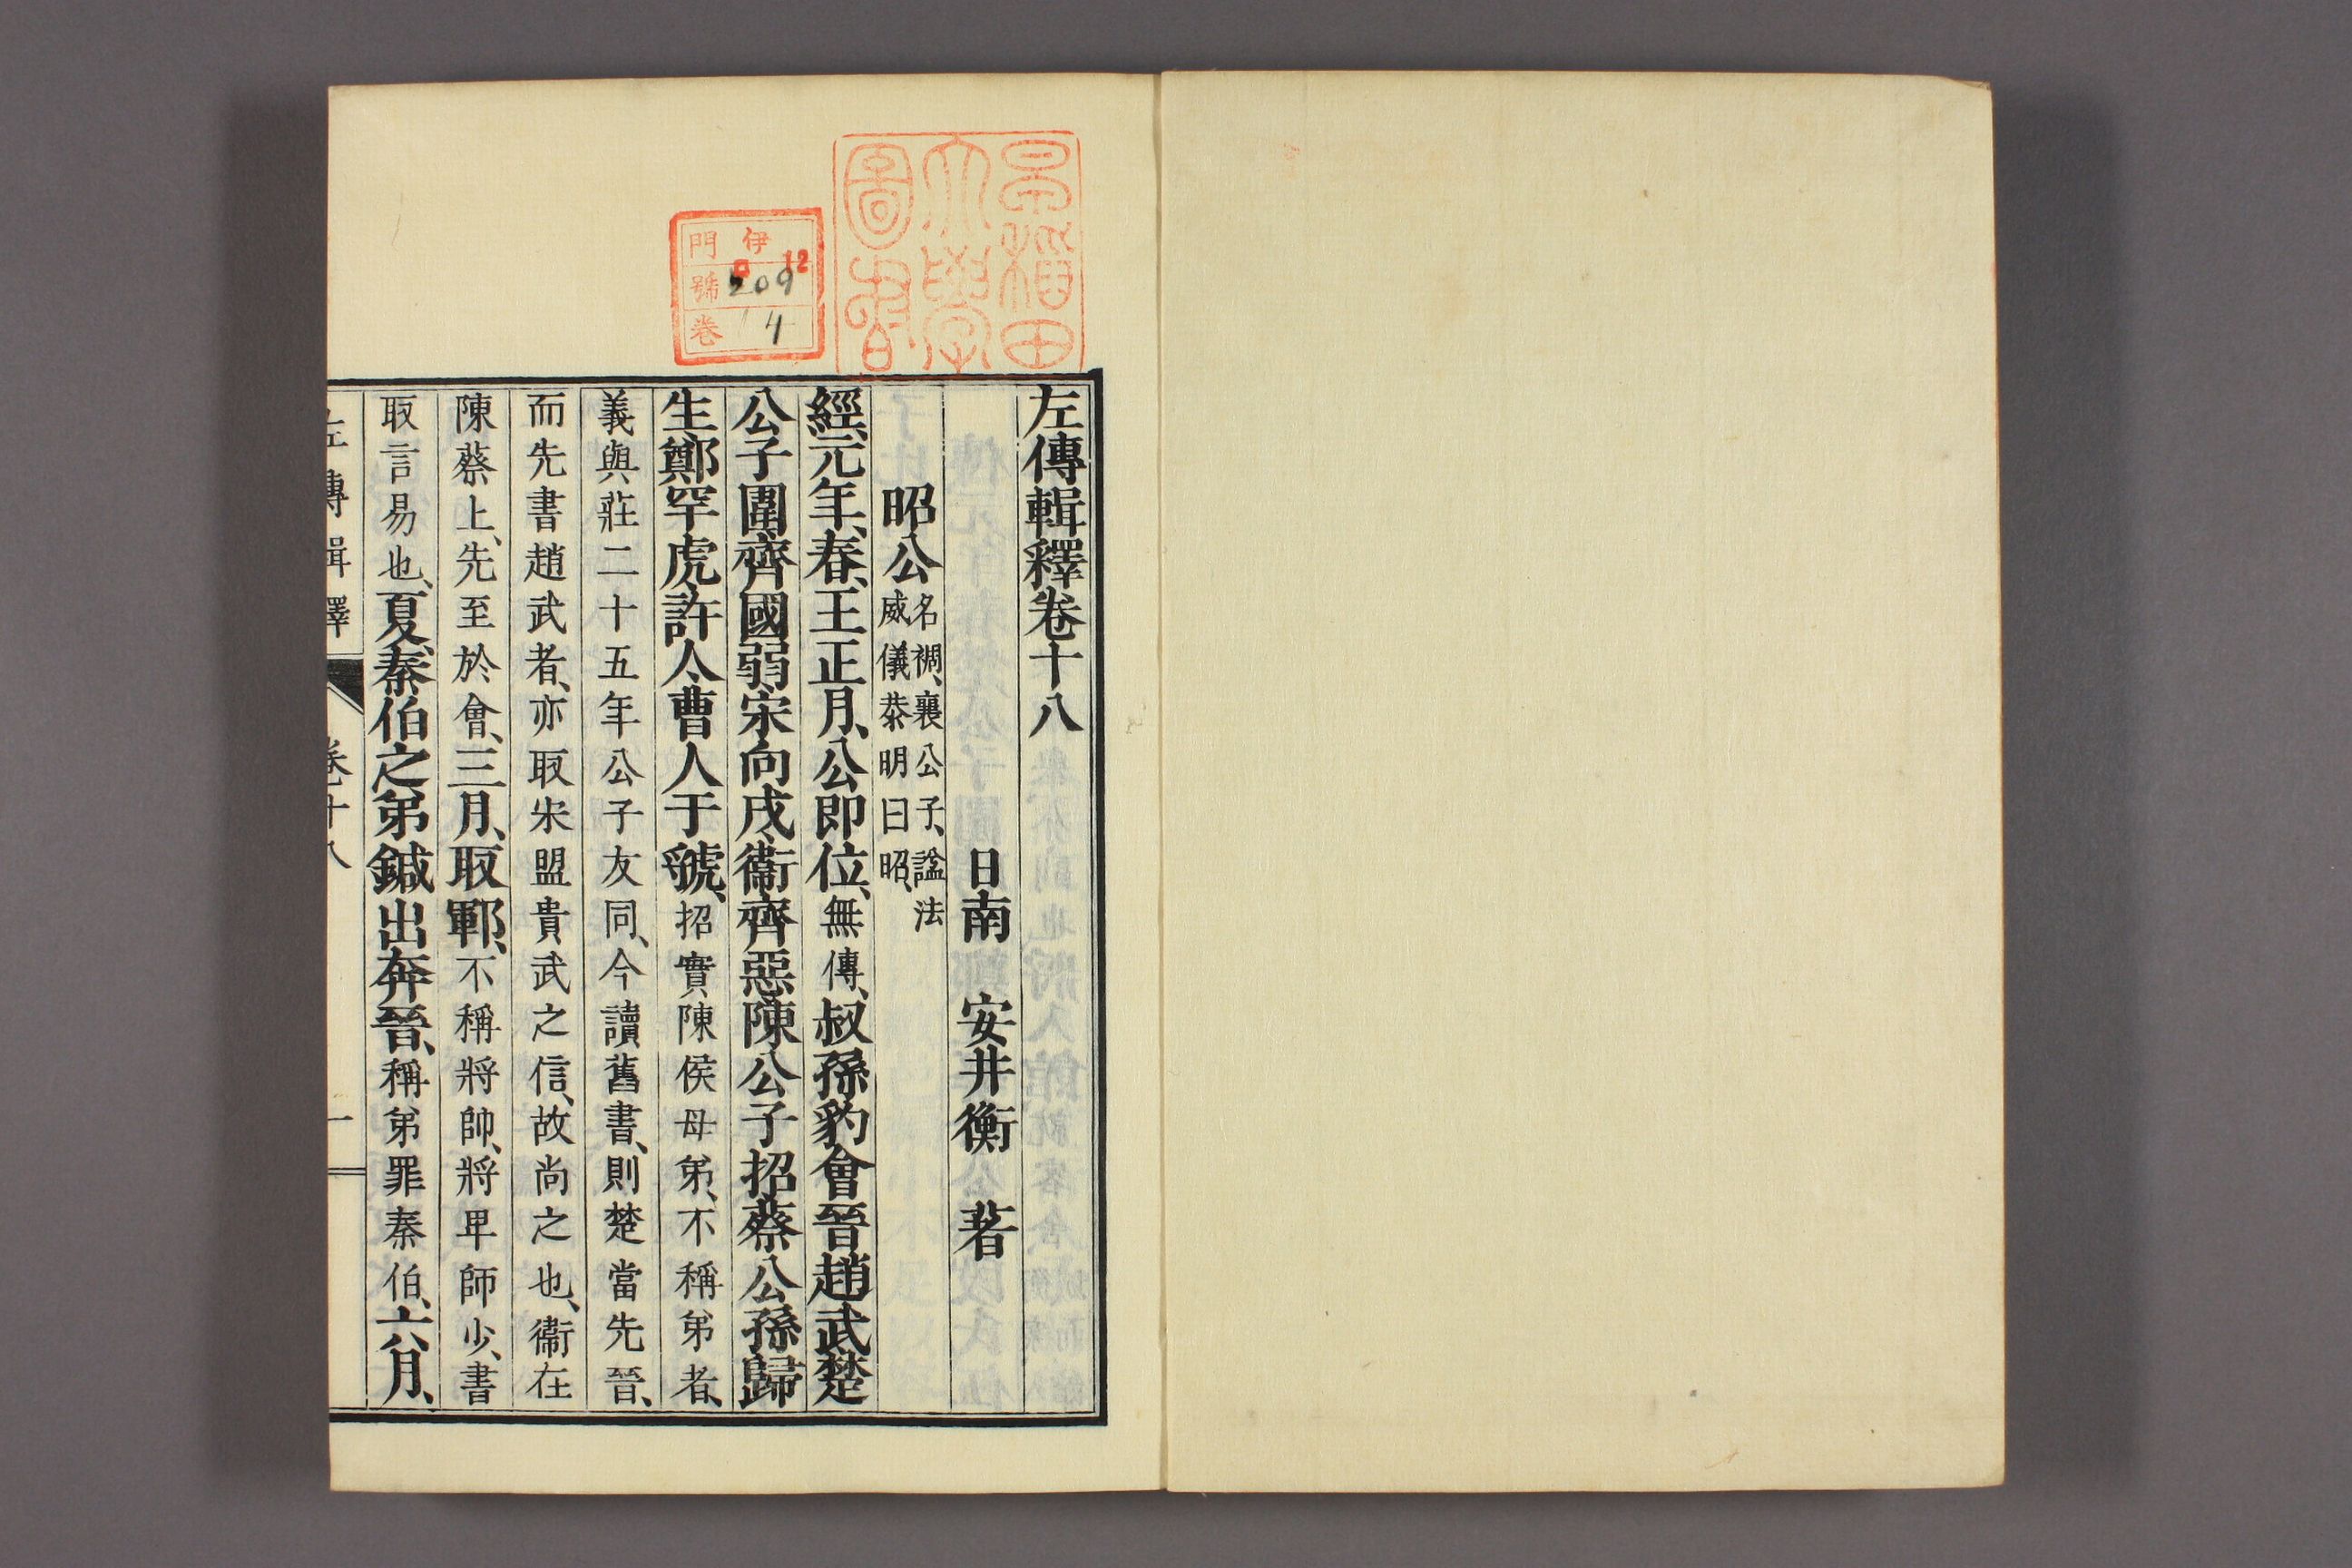 左傳輯釋卷十八
日南 安井衡 著
昭公 名裯、襄公子、諡法威儀恭明曰昭、
經、元年、春、王正月、公即位、無傳、叔孫豹會晉趙武楚
公子圍、齊國弱、宋向戌、衞齊惡、陳公子招、蔡公孫歸
生、鄭罕虎、許人、曹人于虢、招實陳侯母弟、不稱弟者、
義與莊二十五年公子友同、今讀舊書、則楚當先晉、
而先書趙武者、亦取宋盟貴武之信、故尚之也、衞在
陳蔡上、先至於會、三月、取鄆、不稱將帥、將卑師少、書
取言易也、夏、秦伯之弟鍼出奔晉、稱弟罪秦伯、六月、
左傳輯釋 卷十八 一
早稻田大學圖書
伊 12
門
號 209
卷 4